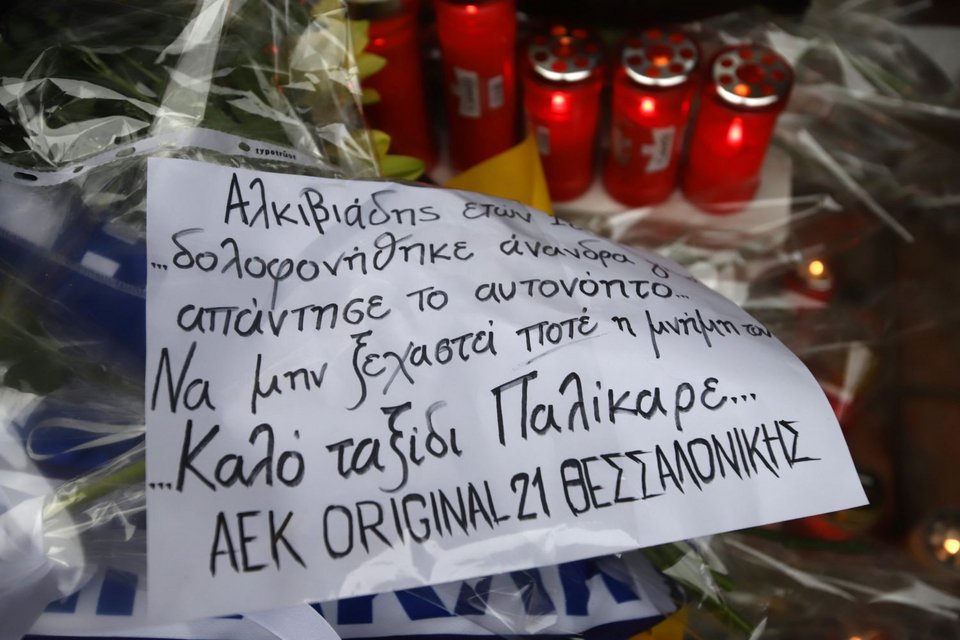 τυροτεύς
Αλκιβιάδης ετών
...δολοφονήθηκε άνανδρα
απάντησε το αυτονόητο...
Να μην ξεχαστεί ποτέ η μνήμη του
...Καλό ταξίδι Παλίκαρε...
ΑΕΚ ORIGINAL 21 ΘΕΣΣΑΛΟΝΙΚΗΣ